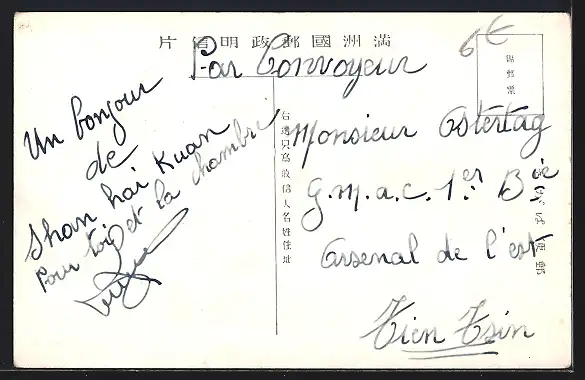 片信明政郵國洲滿
Par Convoyeur
6€
Un bonjour
de
Shan hai Kuan
Pour toi et la chambre
Monsieur Ostertag
G.M.a.C. 1er Bie
Arsenal de l'est
Tien Tsin
右邊只寫收信人名姓住址